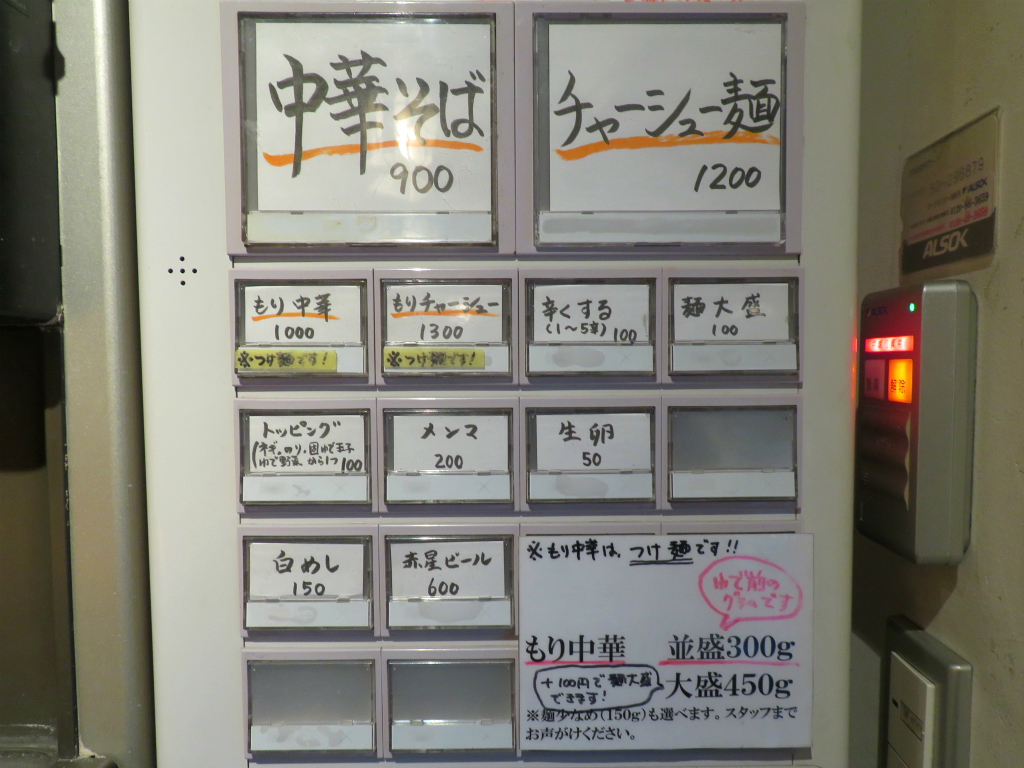 中華そば
900
チャーシュー麺
1200
もり中華
1000
※つけ麺です!
もりチャーシュー
1300
※つけ麺です!
辛くする
(1〜5辛) 100
麺大盛
100
トッピング
ネギ、のり、固ゆで玉子
ゆで野菜 から1つ 100
メンマ
200
生卵
50
白めし
150
赤星ビール
600
※もり中華は、つけ麺です!!
ゆで前の
グラムです
もり中華 並盛300g
+100円で麺大盛
できます!
大盛450g
※麺少なめ(150g)も選べます。スタッフまで
お声がけください。
ALSOK
ALSOK